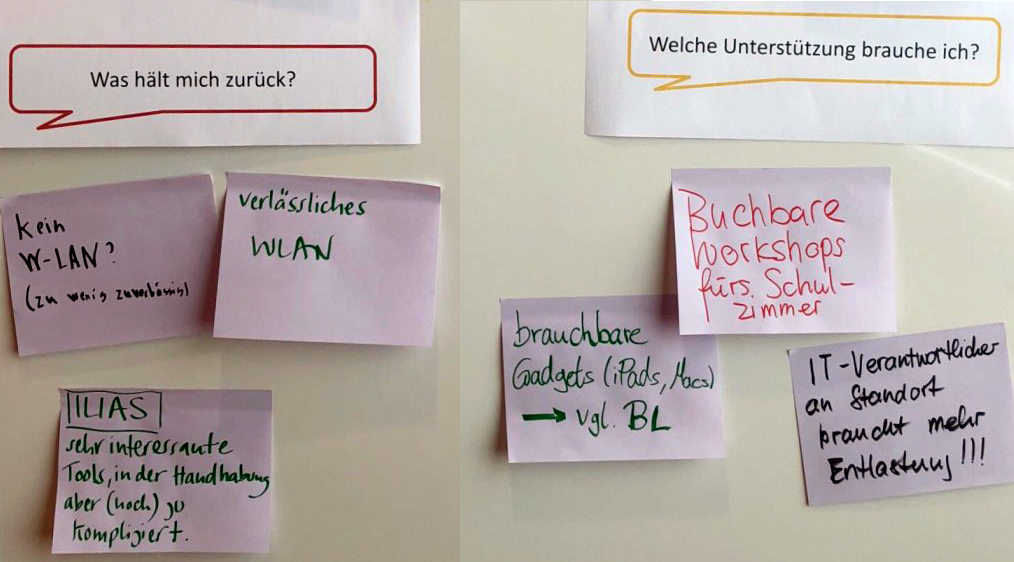 Was hält mich zurück?
kein
W-LAN?
(zu wenig zuverlässig)
verlässliches
WLAN
ILIAS
sehr interessante
Tools, in der Handhabung
aber (noch) zu
kompliziert.
Welche Unterstützung brauche ich?
Buchbare
Workshops
fürs Schul-
zimmer
brauchbare
Gadgets (iPads, Macs)
→ vgl. BL
IT-Verantwortlicher
an Standort
braucht mehr
Entlastung!!!